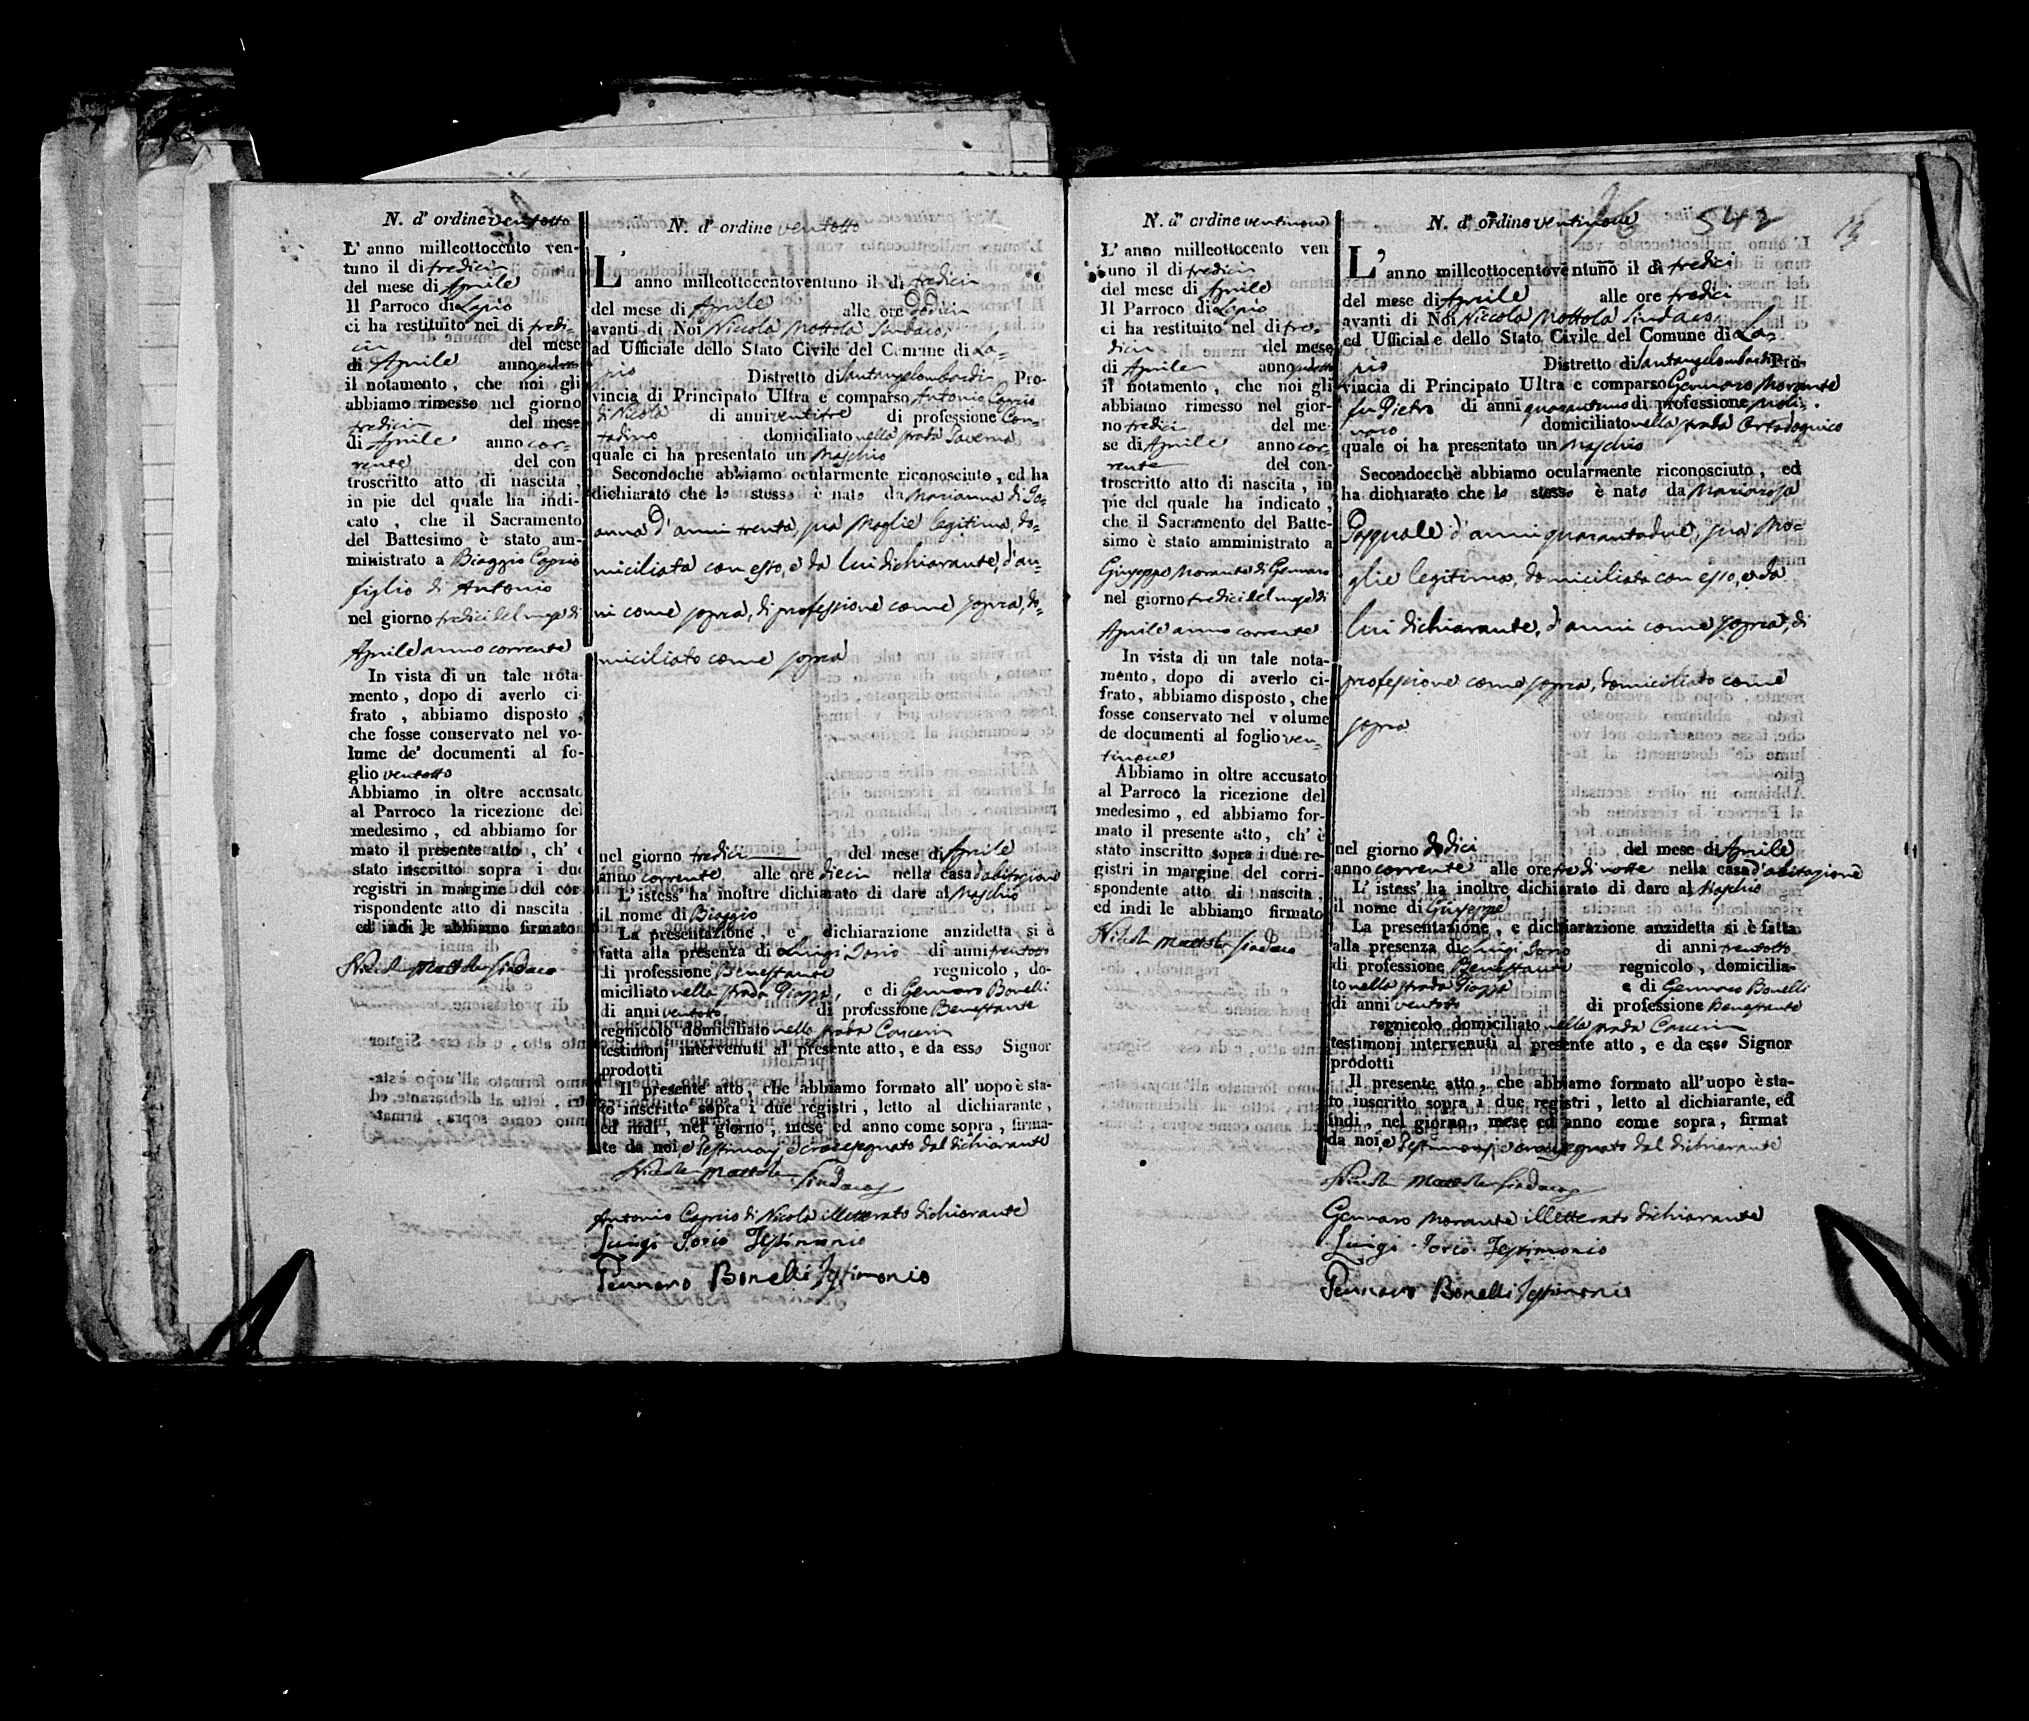 N. d' ordine ventotto
L' anno milleottocento ven-
tuno il dì tredici
del mese di Aprile
Il Parroco di Lapio
ci ha restituito nel dì tredi-
ci del mese
di Aprile anno
il notamento, che noi gli
abbiamo rimesso nel giorno
tredici del mese
di Aprile anno cor-
rente del con
troscritto atto di nascita,
in pie del quale ha indi-
cato, che il Sacramento
del Battesimo è stato am-
ministrato a Biaggio Caprio
figlio di Antonio
nel giorno tredici del mese di
Aprile anno corrente
In vista di un tale nota-
mento, dopo di averlo ci
frato, abbiamo disposto,
che fosse conservato nel vo-
lume de' documenti al fo-
glio ventotto
Abbiamo in oltre accusato
al Parroco la ricezione del
medesimo, ed abbiamo for
mato il presente atto, ch' è
stato inscritto sopra i due
registri in margine del cor
rispondente atto di nascita
ed indi le abbiamo firmato
Nicola Mottola Sindaco
N. d' ordine ventotto
L' anno milleottocentoventuno il dì tredici
del mese di Aprile alle ore dodici
avanti di Noi Niccola Mottola Sindaco,
ad Uffiziale dello Stato Civile del Comune di La-
pio Distretto di Santangelombardi Pro-
vincia di Principato Ultra e comparso Antonio Caprio
di Nicola di anni ventitre di professione Con-
tadino domiciliato nella strada Taverna
quale ci ha presentato un Maschio
Secondoche abbiamo ocularmente riconosciuto, ed ha
dichiarato che lo stesso è nato da Marianna di Jo-
anna d' anni trenta, sua Moglie legitima, do-
miciliata con esso, e da lui dichiarante, d'an-
ni come sopra, di professione come sopra, do-
miciliato come sopra
nel giorno tredici del mese di Aprile
anno corrente alle ore dieci nella casa d'abitazione
L' istess' ha inoltre dichiarato di dare al Maschio
il nome di Biaggio
La presentazione, e dichiarazione anzidetta si è
fatta alla presenza di Luigi Iorio di anni trentotto
di professione Benestante regnicolo, do-
miciliato nella strada Piazza, e di Gennaro Bonelli
di anni ventotto di professione Benestante
regnicolo domiciliato nella strada Carceri
testimonj intervenuti al presente atto, e da esso Signor
prodotti
Il presente atto, che abbiamo formato all' uopo è sta-
to inscritto sopra i due registri, letto al dichiarante,
ed indi, nel giorno, mese ed anno come sopra, firma-
te da noi, e Testimonj, e crocesegnato dal dichiarante
Nicola Mottola Sindaco
Antonio Caprio di Nicola illetterato dichiarante
Luigi Iorio Testimonio
Gennaro Bonelli Testimonio
N. d' ordine ventinove
L' anno milleottocento ven
tuno il dì tredici
del mese di Aprile
Il Parroco di Lapio
ci ha restituito nel dì tre-
dici del mese
di Aprile anno
il notamento, che noi gli
abbiamo rimesso nel gior-
no tredici del me-
se di Aprile anno cor-
rente del con-
troscritto atto di nascita, in
pie del quale ha indicato,
che il Sacramento del Batte-
simo è stato amministrato a
Giuseppe Morante di Gennaro
nel giorno tredici del mese di
Aprile anno corrente
In vista di un tale nota-
mento, dopo di averlo ci-
frato, abbiamo disposto, che
fosse conservato nel volume
de documenti al foglio ven-
tinove
Abbiamo in oltre accusato
al Parroco la ricezione del
medesimo, ed abbiamo for-
mato il presente atto, ch' è
stato inscritto sopra i due re-
gistri in margine del corri-
spondente atto di nascita
ed indi le abbiamo firmato
Nicola Mottola Sindaco
N. d' ordine ventinove
542
L' anno milleottocentoventuno il dì tredici
del mese di Aprile alle ore tredici
avanti di Noi Niccola Mottola Sindaco,
ed Ufficiale dello Stato Civile del Comune di La-
pio Distretto di Santangelombardi Pro-
vincia di Principato Ultra e comparso Gennaro Morante
fu Pietro di anni quarantuno di professione Moli-
naro domiciliato nella strada Ortodonico
quale ci ha presentato un Maschio
Secondocchè abbiamo ocularmente riconosciuto, ed
ha dichiarato che lo stesso è nato da Mariarosa
Pasquale d' anni quarantadue, sua Mo-
glie legitima, domiciliata con esso, e da
lui dichiarante, d' anni come sopra, di
professione come sopra, domiciliato come
sopra
nel giorno dodici del mese di Aprile
anno corrente alle ore tre di notte nella casa d'abitazione
L' istess' ha inoltre dichiarato di dare al Maschio
il nome di Giuseppe
La presentazione, e dichiarazione anzidetta si è fatta
alla presenza di Luigi Iorio di anni trentotto
di professione Benestante regnicolo, domicilia-
to nella strada Piazza e di Gennaro Bonelli
di anni ventotto di professione Benestante
regnicolo domiciliato nella strada Carceri
testimonj intervenuti al presente atto, e da esso Signor
prodotti
Il presente atto, che abbiamo formato all'uopo è sta-
to inscritto sopra i due registri, letto al dichiarante, ed
indi, nel giorno, mese ed anno come sopra, firmat
da noi, e Testimonj, e crocesegnato dal dichiarante
Nicola Mottola Sindaco
Gennaro Morante illetterato dichiarante
Luigi Iorio Testimonio
Gennaro Bonelli Testimonio